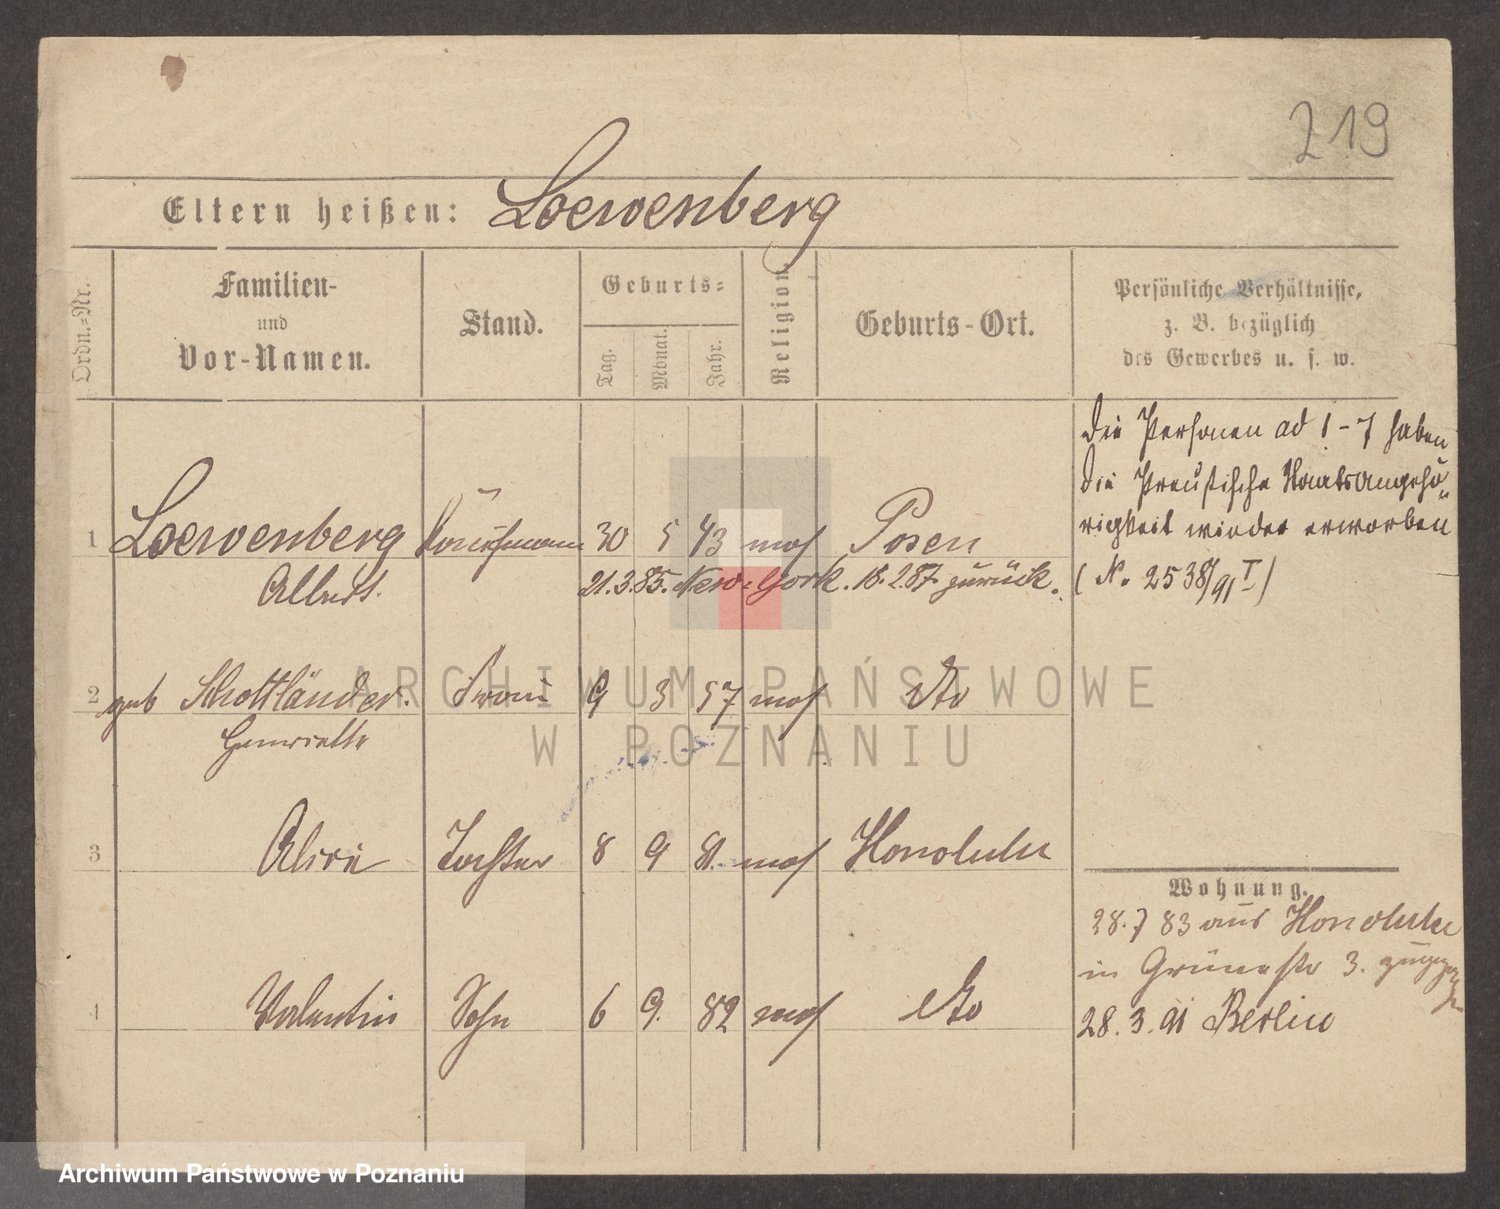 219
Eltern heißen: Loewenberg
Ordn.-Nr.
Familien-
und
Vor-Namen.
Stand.
Geburts-
Tag.
Monat.
Jahr.
Religion.
Geburts-Ort.
Persönliche Verhältnisse,
z. B. bezüglich
des Gewerbes u. s. w.
Die Personen ad 1-7 haben
die Preußische Staatsangehö-
rigkeit wieder erworben
(N. 2538/91 I)
1 Loewenberg Kaufmann 30 5 43 mos Posen
Albert. 21.3.85. New-York. 18.2.87. zurück.
2 geb Schottländer. Frau 9 3 57 mos dto
Henriette
3 Alice Tochter 8 9 81. mos Honolulu
4 Valentin Sohn 6 9. 82 mos dto
Wohnung.
28.7 83 aus Honolulu
in Grünestr 3. zugezogen
28.3.91 Berlin
ARCHIWUM PAŃSTWOWE
W POZNANIU
Archiwum Państwowe w Poznaniu